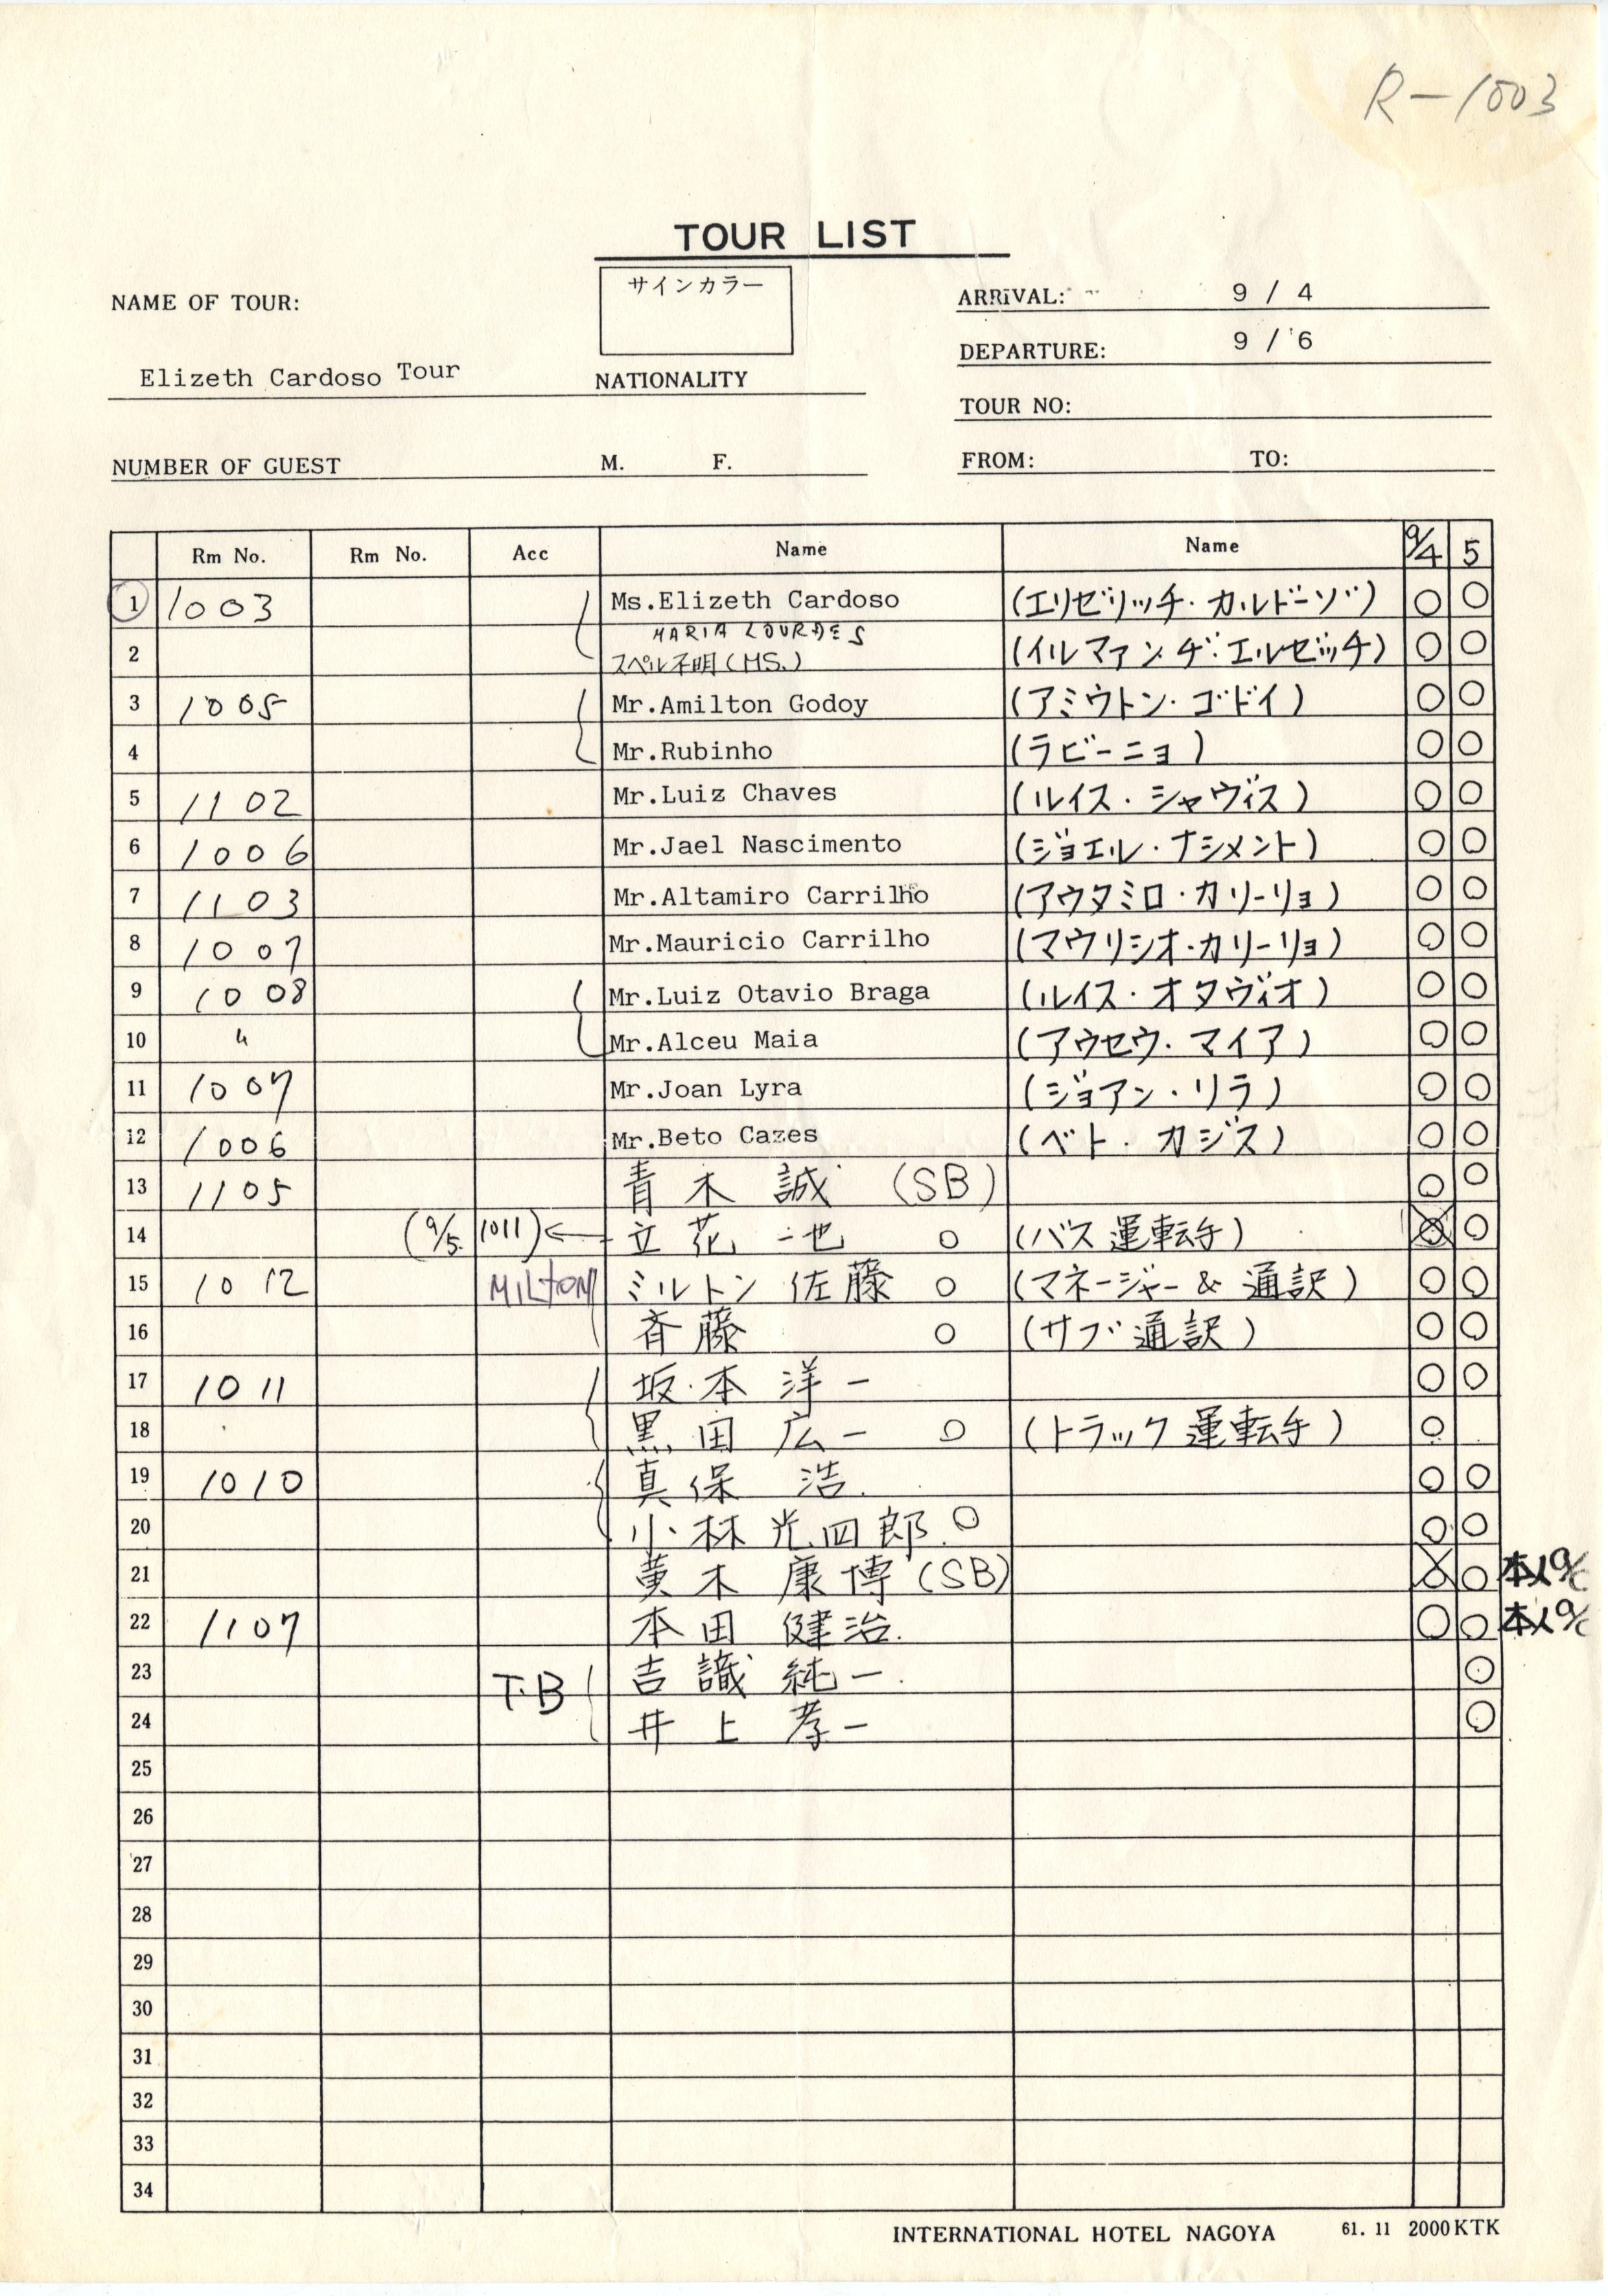 R-1003
TOUR LIST
サインカラー
NAME OF TOUR:
ARRIVAL: 9 / 4
DEPARTURE: 9 / 6
Elizeth Cardoso Tour NATIONALITY
TOUR NO:
NUMBER OF GUEST M. F.
FROM: TO:
Rm No. Rm No. Acc Name Name 9/4 5
1 1003 Ms.Elizeth Cardoso (エリゼリッチ・カルドーゾ) ○ ○
MARIA LOURDES
2 スペル不明(MS.) (イルマァンヂ・エルゼッチ) ○ ○
3 1005 Mr.Amilton Godoy (アミウトン・ゴドイ) ○ ○
4 Mr.Rubinho (ラビーニョ) ○ ○
5 1102 Mr.Luiz Chaves (ルイス・シャヴィス) ○ ○
6 1006 Mr.Jael Nascimento (ジョエル・ナシメント) ○ ○
7 1103 Mr.Altamiro Carrilho (アウタミロ・カリーリョ) ○ ○
8 1007 Mr.Mauricio Carrilho (マウリシオ・カリーリョ) ○ ○
9 1008 Mr.Luiz Otavio Braga (ルイス・オタヴィオ) ○ ○
10 〃 Mr.Alceu Maia (アウセウ・マイア) ○ ○
11 1007 Mr.Joan Lyra (ジョアン・リラ) ○ ○
12 1006 Mr.Beto Cazes (ベト・カジス) ○ ○
13 1105 青木 誠 (SB) ○ ○
14 (9/5. 1011)← 立花 一也 ○ (バス運転手) ○
15 1012 MILTON ミルトン 佐藤 ○ (マネージャー & 通訳) ○ ○
16 斉藤 ○ (サブ通訳) ○ ○
17 1011 坂本 洋一 ○ ○
18 黒田 広一 ○ (トラック運転手) ○
19 1010 真保 浩 ○ ○
20 小林 光四郎 ○ ○ ○
21 黄木 康博 (SB) ○ 本人%
22 1107 本田 健治 ○ ○ 本人%
23 T.B 吉識 純一 ○
24 井上 孝一 ○
25
26
27
28
29
30
31
32
33
34
INTERNATIONAL HOTEL NAGOYA 61. 11 2000 KTK